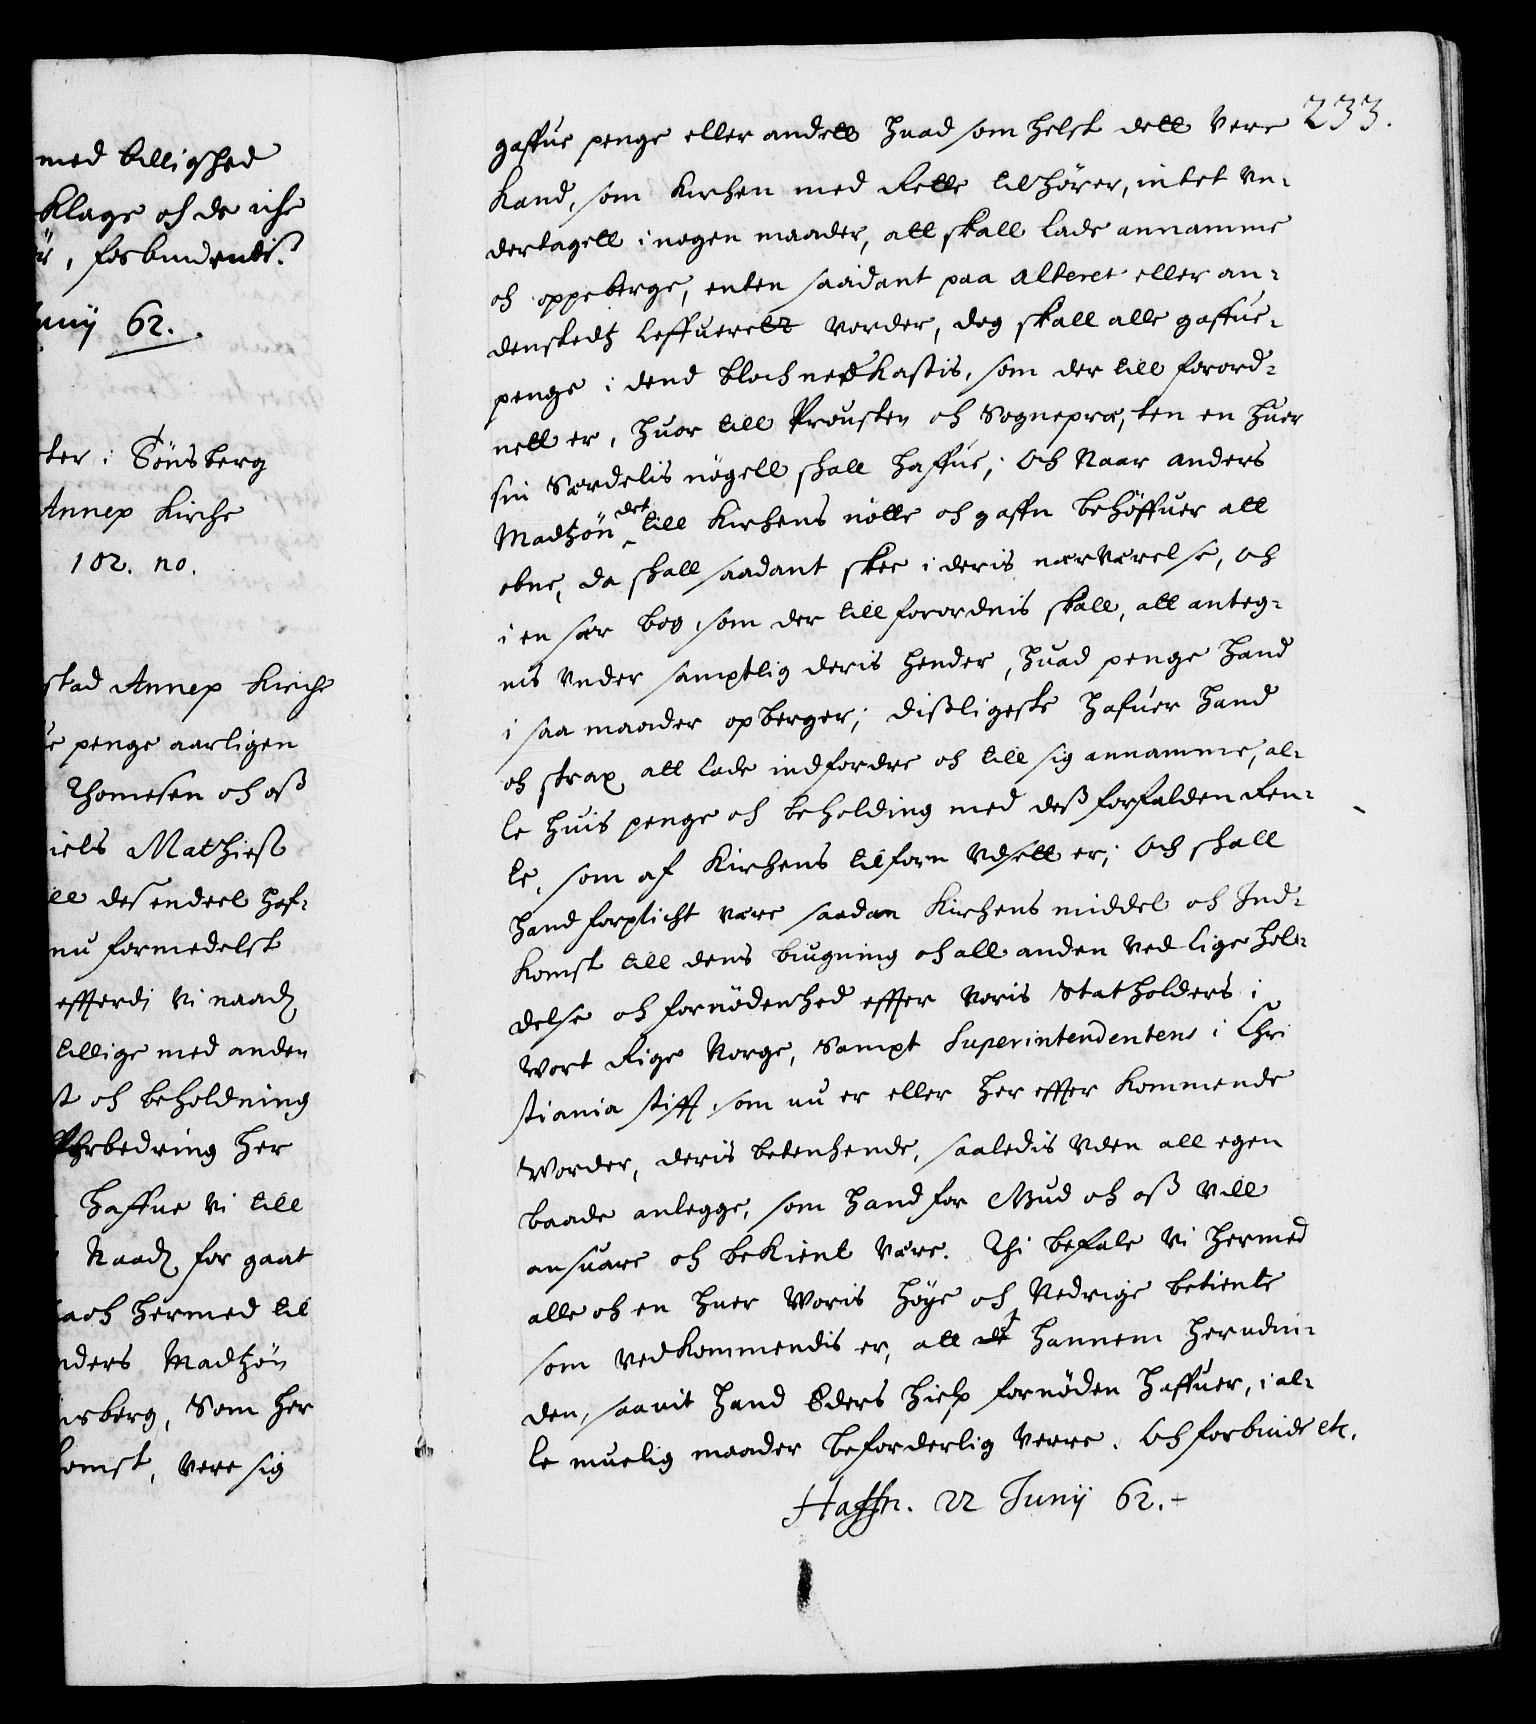 med billighed
klage och de iche
, forbundentis.
unij 62.
ter i Tönsberg
Annex Kirche
102. no.
stad Annex Kirche
penge aarligen
Thomesen och oß
iels Mathieß
ell des endeel haf-
nu formedelst
efftterdj Vi naadj
tillige med anden
st och beholdning
forbedring her
haffue Vi till
Naadj for gaat
och hermed til
nders Madtzön
nsberg, Som her
komst, Vere sig
233.
gaffue penge eller andett huad som helst dett Vere
kand, som kirchen med Rette tilhörer, intet Vn-
dertagett i nogen maader, att skall lade annamme
och oppeberge, enten saadant paa Alteret eller an-
denstedtz leffueret Vorder, dog skall alle gaffue-
penge i dend bloch nedkastis, som der till forord-
nett er, huor till Prousten och Sognepræsten en huer
sin Særdelis nögell skall haffue; Och Naar Anders
Madtzön det till Kirchens nötte och gaffn behöffuer att
obne, da skall saadant skee i deris nærværelse, och
i en sær bog, som der till forordnis skall, att anteg-
nis Vnder samptlig deris hender, huad penge hand
i saa maader opberger; dißligeste hafuer hand
och strax att lade indfordre och till sig annamme, al-
le huis penge och beholding med deß forfalden Ren-
te, som af Kirchens tilforn Vdsett er; Och skall
hand forplicht være saadan Kirchens middel och Ind-
komst till dens bugning och all anden Ved lige hol-
delse och fornödenhed effter Voris Statholders i
Wort Rige Norge, Sampt Superintendentens i Chri
stiania stifft, som nu er eller her effter kommende
Worder, deris betenchende, saaledis Vden all egen
baade anlegge, som hand for Gud och oß Vill
ansuare och bekient være. Thi befale Vi hermed
alle och en huer Woris höye och Nedrige betiente
som vedkommendis er, att de hannem herudin-
den, saauit hand Eders hielp fornöden haffuer, i al-
le muelig maader beforderlig Verre. Och forbinde etc.
Haffn. 22 Junij 62.